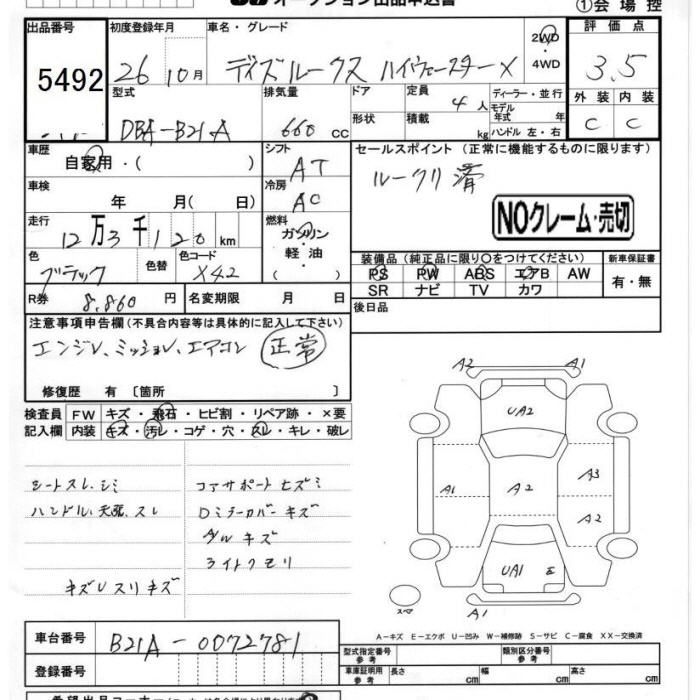 オークション出品申込書
①会場控
出品番号
5492
初度登録年月
26 10月
車名・グレード
デイズルークス ハイウェースターX
2WD
4WD
評価点
3.5
外装 内装
C C
型式
DBA-B21A
排気量
660 cc
ドア
形状
定員
4 人
積載
kg
ディーラー・並行
モデル
年式 年
ハンドル 左・右
車歴
自家用・( )
シフト
AT
セールスポイント (正常に機能するものに限ります)
ルークリ済
NOクレーム・売切
車検
年 月( 日)
冷房
AC
走行
12万3千120 km
燃料
ガソリン
軽油
( )
色
ブラック
色替
色コード
X42
装備品 (純正品に限り○をつけてください)
PS PW ABS エアB AW
SR ナビ TV カワ
新車保証書
有・無
R券
8,860 円
名変期限
月 日
後日品
注意事項申告欄 (不具合内容等は具体的に記入して下さい)
エンジン、ミッション、エアコン 正常
修復歴 有 〔箇所 〕
検査員
記入欄
FW キズ・飛石・ヒビ割・リペア跡・×要
内装 キズ・汚レ・コゲ・穴・スレ・キレ・破レ
シートスレ、シミ
ハンドル、天張、スレ
キズUスリキズ
コアサポートヒズミ
Dミラーカバーキズ
A/Wキズ
ライトクモリ
A2 A1
UA2
A1 A2 A3
A2
UA1
A1
スペア
A-キズ E-エクボ U-凹み W-補修跡 S-サビ C-腐食 XX-交換済
車台番号
B21A-0072781
登録番号
型式指定番号
参考
類別区分番号
参考
車庫証明用
参考
長さ cm
幅 cm
高さ cm
希望出品コーナー